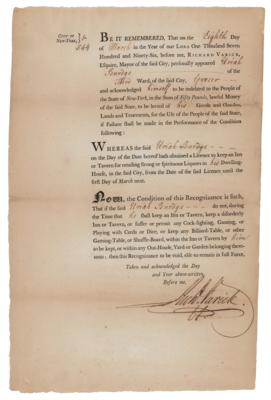 City of
New-York,
BE IT REMEMBERED, That on the Eighth Day
of March in the Year of our Lord One Thousand Seven
Hundred and Ninety-Six, before me, RICHARD VARICK,
Esquire, Mayor of the said City, personally appeared Uriah
Burdge of the
Ward, of the said City, Grocer
and acknowledged himself to be indebted to the People of the
State of New-York, in the Sum of Fifty Pounds, lawful Money
of the said State, to be levied of his Goods and Chattels,
Lands and Tenements, for the Use of the People of the said State,
if Failure shall be made in the Performance of the Condition
following:
WHEREAS the said Uriah Burdge
on the Day of the Date hereof hath obtained a Licence to keep an Inn
or Tavern for retailing Strong or Spirituous Liquors in his Dwelling-
House, in the said City, from the Date of the said Licence until the
first Day of March next.
Now, the Condition of this Recognizance is such,
That if the said Uriah Burdge do not, during
the Time that he shall keep an Inn or Tavern, keep a disorderly
Inn or Tavern, or suffer or permit any Cock-fighting, Gaming, or
Playing with Cards or Dice, or keep any Billiard-Table, or other
Gaming-Table, or Shuffle-Board, within the Inn or Tavern by him
to be kept, or within any Out-House, Yard or Garden belonging there-
unto; then this Recognizance to be void, else to remain in full Force.
Taken and acknowledged the Day
and Year above-written,
Before me,
Richd. Varick